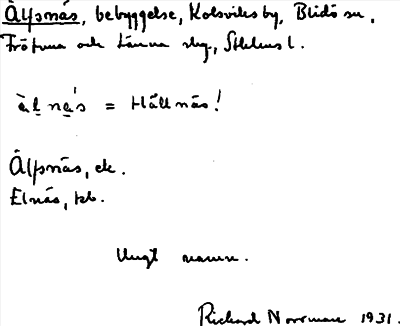 Älpsnäs, bebyggelse, Kolsviks by, Blidö sn,
Frötuna och Länna skg, Sthlms l.
àl nás = Hållnäs!
Älpsnäs, ek.
Elnäs, tpk.
Ungt namn.
Richard Norrman 1931.